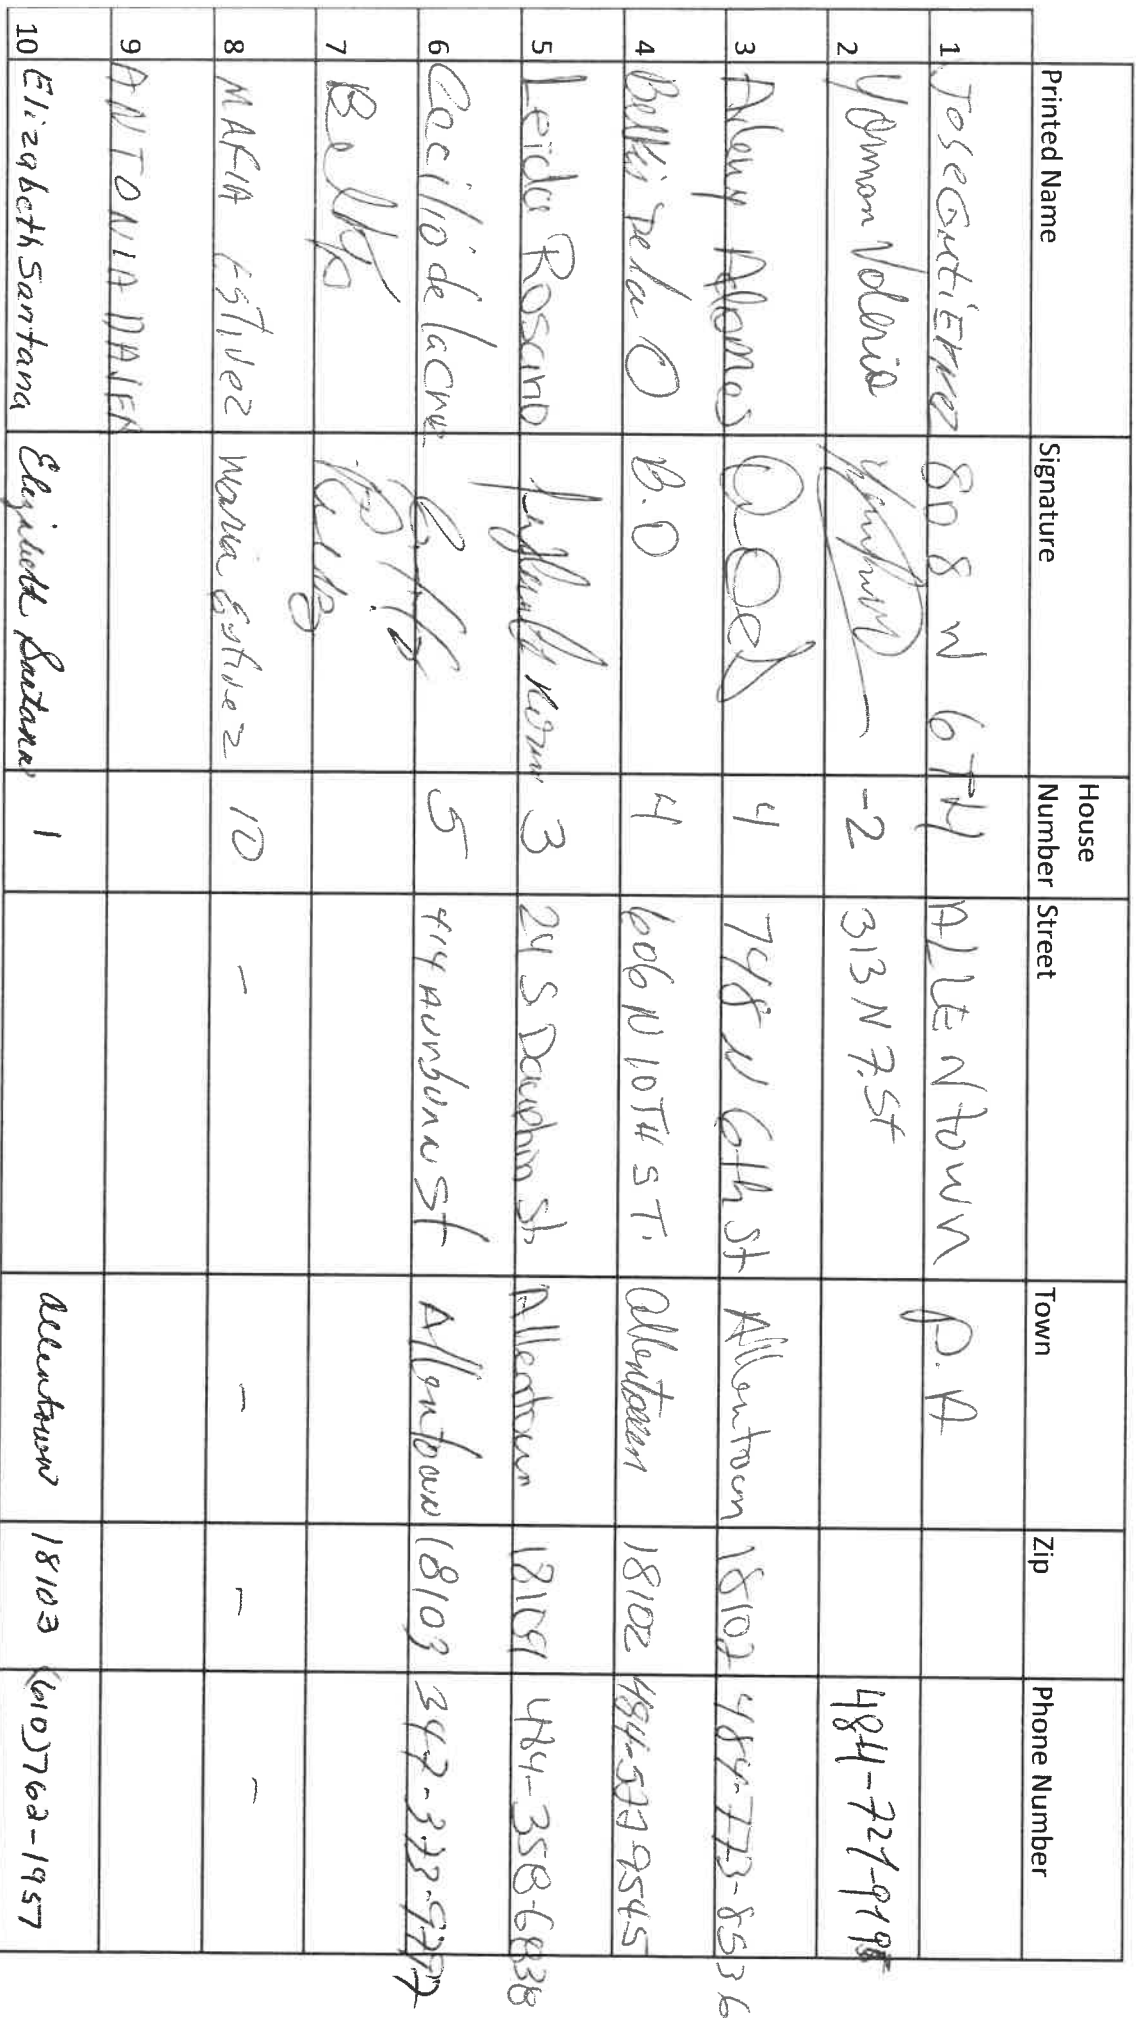 Printed Name Signature House Number Street Town Zip Phone Number
1 Jose Gutierrez 808 N 6TH ALLENtown P.A
2 Yorman Valerio -2 313 N 7.St
3 4 748 N 6th St Allentown 18102 484-773-8536
4 Belkis De la O B.O 4 606 N 10TH ST. allentown 18102 484-577 9545
5 Leida Rosario 3 24 S Dauphin St. Allentown 484-358-6838
6 Cecilio de la Cruz 5 414 AUrbUNN St Allentown 18103 347-373-9777
7
8 MARIA EStivez Maria Estivez 10 - - - -
9 ANTONIA
10 Elizabeth Santana Elizabeth Santana 1 allentown 18103 (610)762-1957